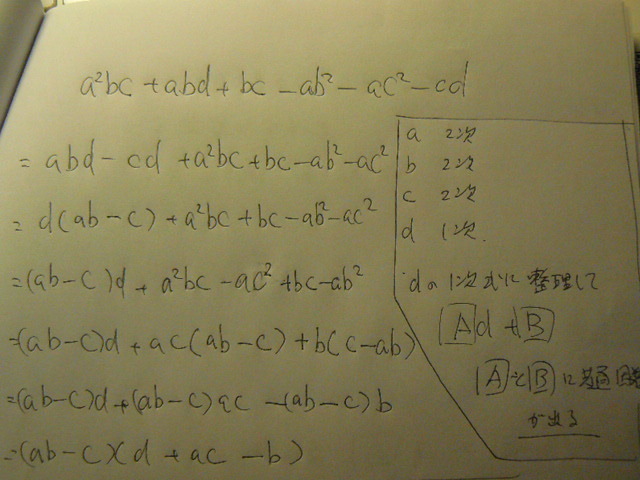 a²bc + abd + bc - ab² - ac² - cd
= abd - cd + a²bc + bc - ab² - ac²
= d(ab-c) + a²bc + bc - ab² - ac²
= (ab-c)d + a²bc - ac² + bc - ab²
= (ab-c)d + ac(ab-c) + b(c-ab)
= (ab-c)d + (ab-c)ac - (ab-c)b
= (ab-c)(d + ac - b)
a 2次
b 2次
c 2次
d 1次.
dの1次式に整理して
Ad + B
AとBに共通因数
が出る